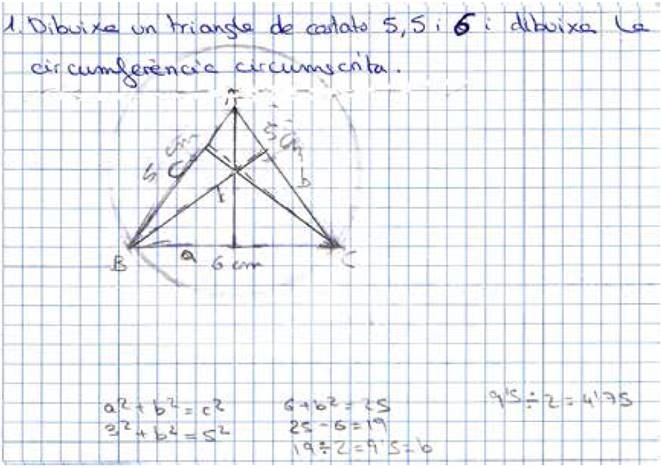 1. Dibuixa un triangle de costats 5, 5 i 6 i dibuixa la
circumferència circumscrita.
A
5 cm
5 cm
c
b
B
a
6 cm
C
a² + b² = c²
3² + b² = 5²
6 + b² = 25
25 - 6 = 19
19 ÷ 2 = 9'5 = b
9'5 ÷ 2 = 4'75